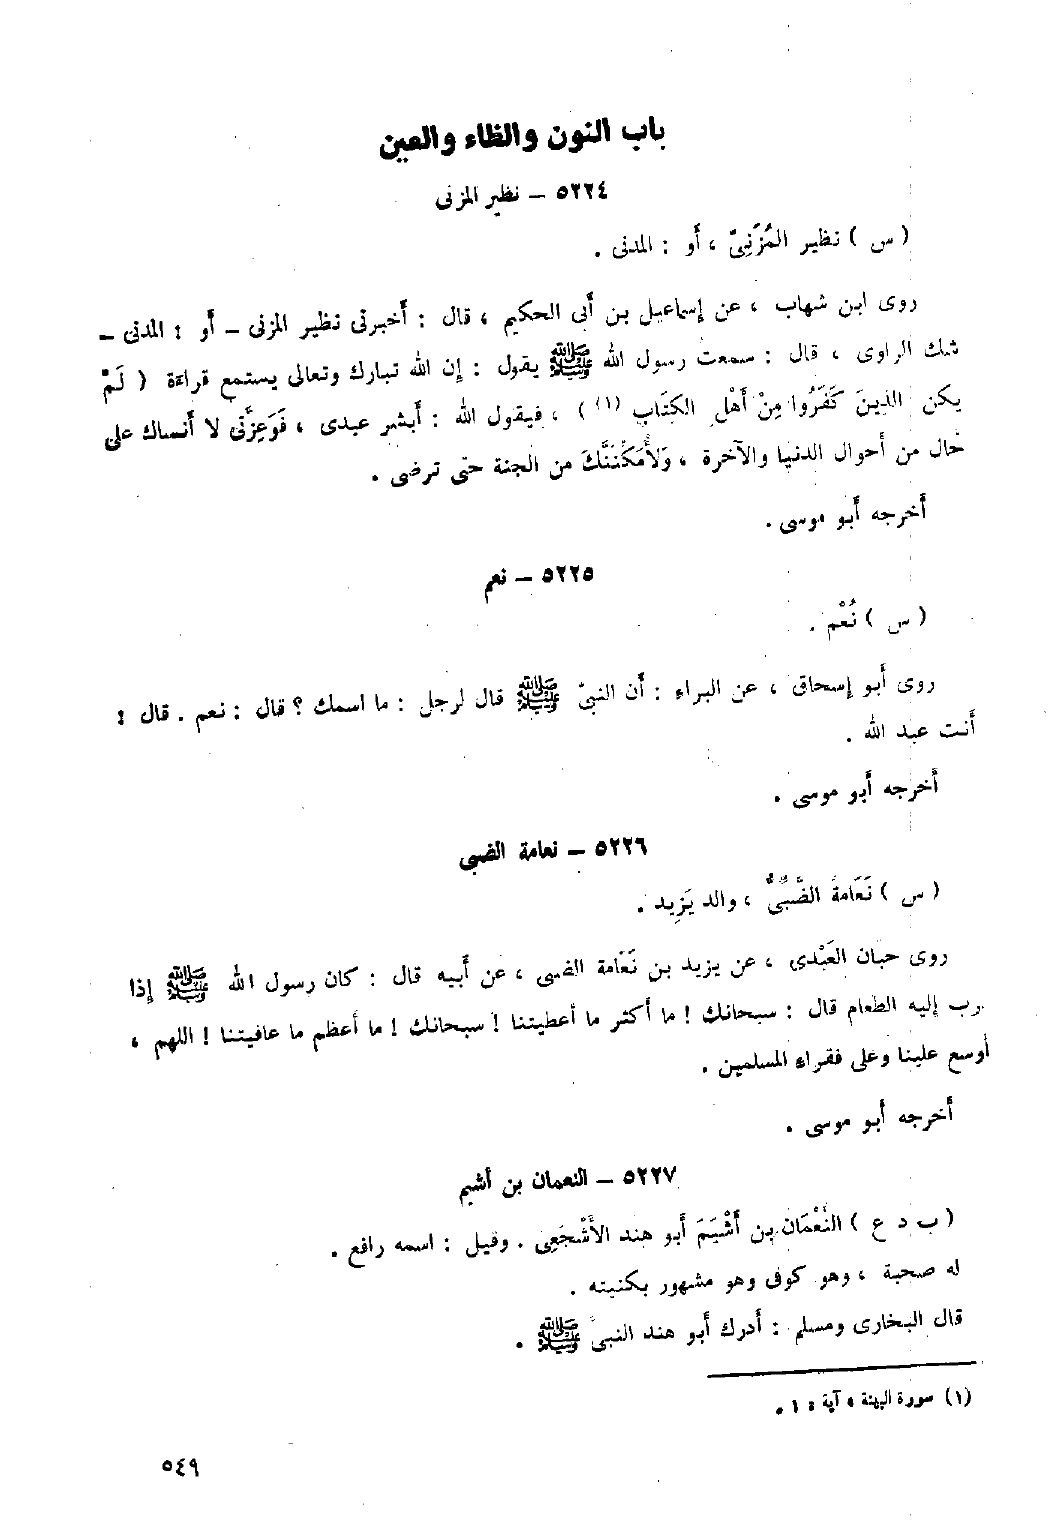 باب النون والظاء والعين
٥٢٢٤ – نظير المزنى
( س ) نظير المُزَنِىّ ، أو : المدنى .
روى ابن شهاب ، عن إسماعيل بن أبى الحكيم ، قال : أخبرنى نظير المزنى – أو : المدنى –
شك الراوى ، قال : سمعت رسول الله ﷺ يقول : إن الله تبارك وتعالى يستمع قراءة ( لَمْ
يكن الذينَ كَفَرُوا مِنْ أهْلِ الكتَابِ (١) ) ، فيقول الله : أبشر عبدى ، فَوَعِزَّتى لا أنساك على
حال من أحوال الدنيا والآخرة ، وَلأُمَكِّنَنَّكَ من الجنة حتى ترضى .
أخرجه أبو موسى .
٥٢٢٥ – نعم
( س ) نُعْم .
روى أبو إسحاق ، عن البراء : أن النبىّ ﷺ قال لرجل : ما اسمك ؟ قال : نعم . قال :
أنت عبد الله .
أخرجه أبو موسى .
٥٢٢٦ – نعامة الضبى
( س ) نَعَامةُ الضَّبِّىُّ ، والد يَزِيد .
روى حبان العَبْدى ، عن يزيد بن نَعَامة الضبى ، عن أبيه قال : كان رسول الله ﷺ إذا
رب إليه الطعام قال : سبحانك ! ما أكثر ما أعطيتنا ! سبحانك ! ما أعظم ما عافيتنا ! اللهم ،
أوسع علينا وعلى فقراء المسلمين .
أخرجه أبو موسى .
٥٢٢٧ – النعمان بن أشيم
( ب د ع ) النُعْمَان بن أشْيَمَ أبو هند الأشْجَعِى . وقيل : اسمه رافع .
له صحبة ، وهو كوفى وهو مشهور بكنيته .
قال البخارى ومسلم : أدرك أبو هند النبىّ ﷺ .
(١) سورة البينة ، آية : ١ .
٥٤٩